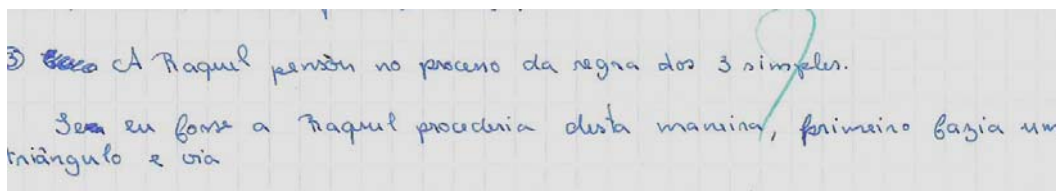 ③ A Raquel pensou no processo da regra dos 3 simples.
Se eu fosse a Raquel procederia desta maneira, primeiro fazia um
triângulo e via